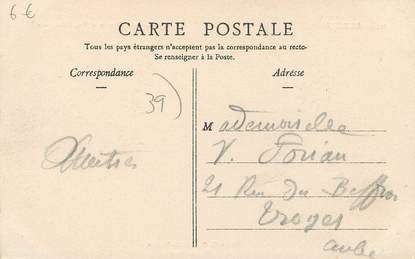 6 €
CARTE POSTALE
Tous les pays étrangers n'acceptent pas la correspondance au recto-
Se renseigner à la Poste.
Correspondance
Adresse
39)
Mademoiselle
V.
21 Rue du Beffroi
Troyes
Aube